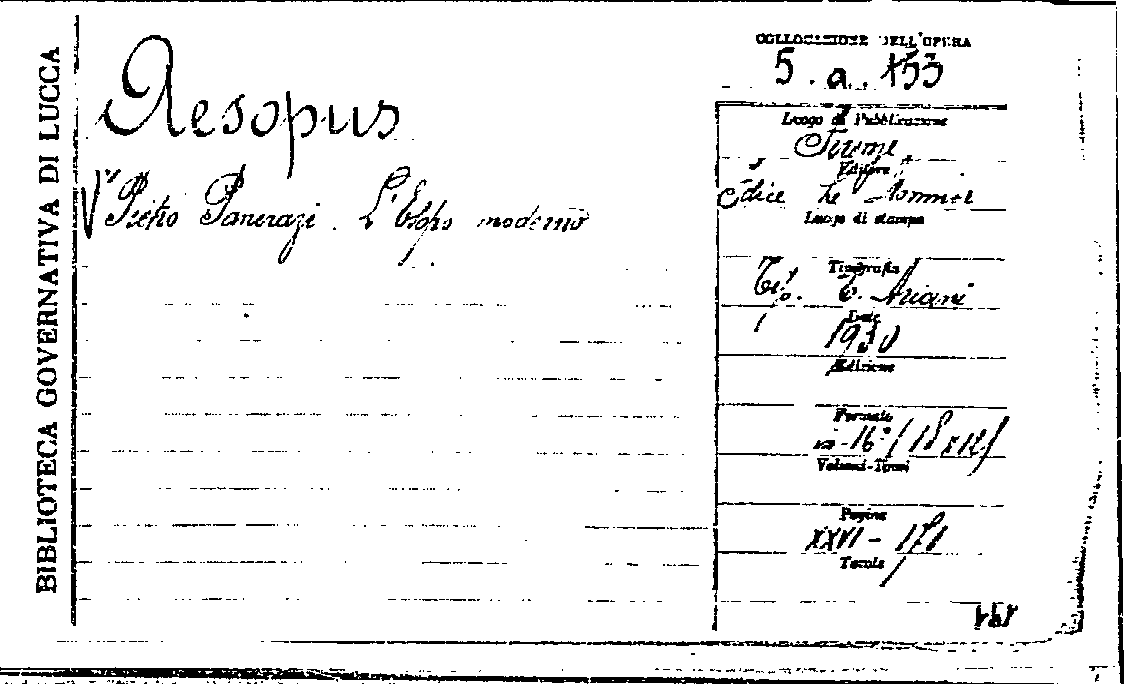 BIBLIOTECA GOVERNATIVA DI LUCCA
Aesopus
Vº Pietro Pancrazi. L'Esopo moderno
COLLOCAZIONE DELL'OPERA
5. a. 153
Luogo di Pubblicazione
Firenze
Editore
Felice Le Monnier
Luogo di stampa
Tipografia
Tip. E. Ariani
Data
1930
Edizione
Formato
in-16º (18x12)
Volumi-Tomi
Pagine
XXVI - 171
Tavole